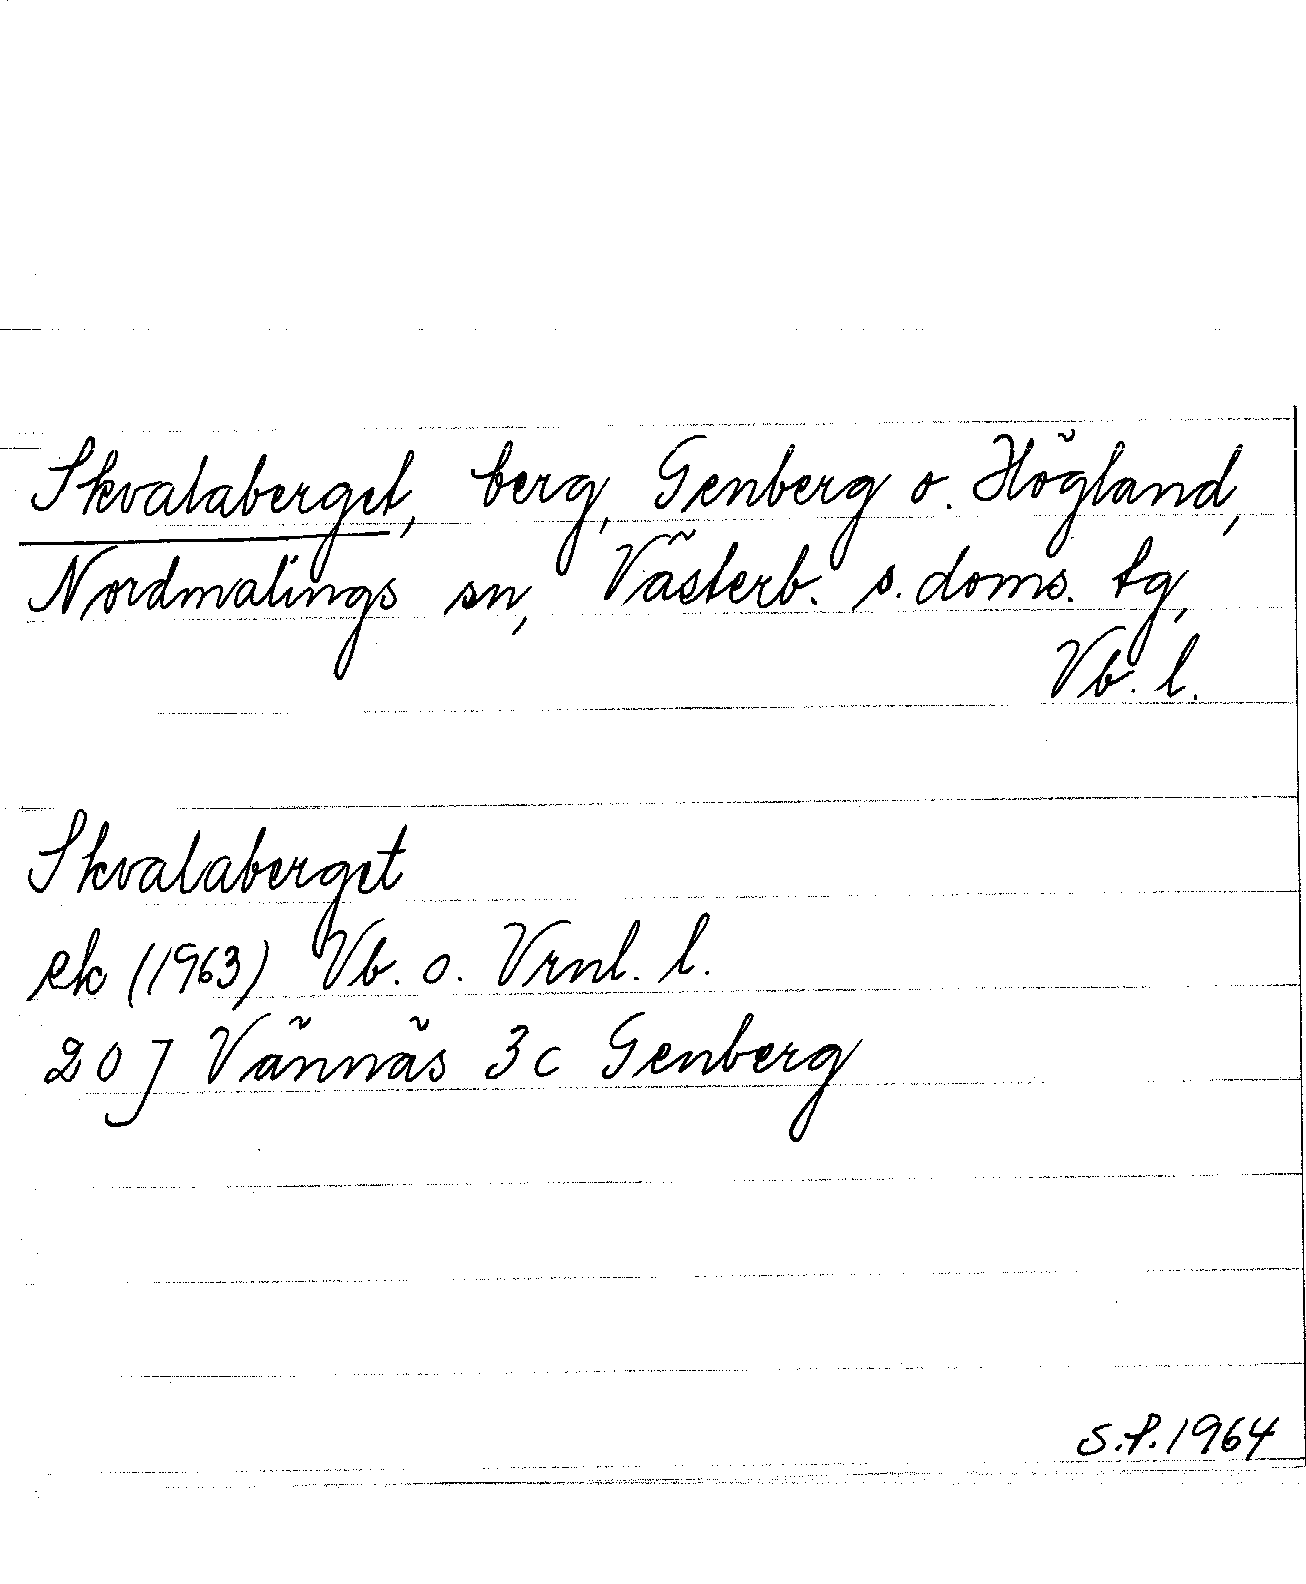 Skvalaberget, berg, Genberg o. Högland,
Nordmalings sn, Västerb. s. doms. tg,
Vb. l.
Skvalaberget
ek (1963) Vb. o. Vrnl. l.
20 J Vännäs 3c Genberg
S.P. 1964